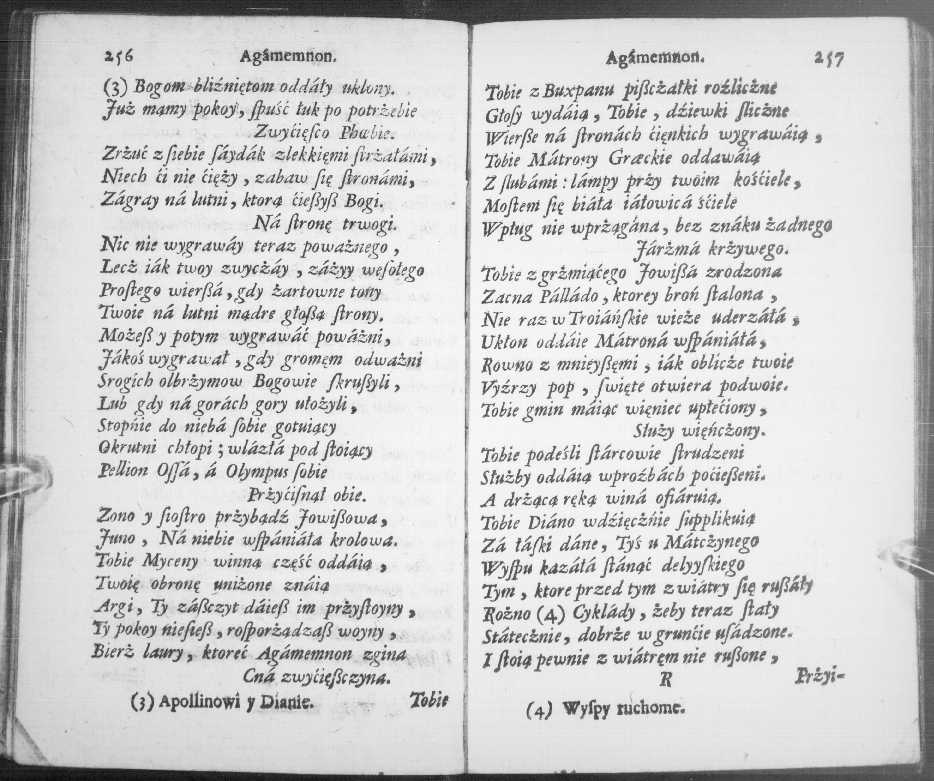 256 Agámemnon.
(3) Bogom bliźniętom oddáły ukłony.
Już mamy pokoy, ſpuść łuk po potrżebie
Zwyćięſco Phœbie.
Zrżuć z ſiebie ſáydák z lekkięmi ſtrżałámi,
Niech ći nie ćięży, zabaw ſię ſtronámi,
Zágray ná lutni, ktorą ćieſzyß Bogi.
Ná ſtronę trwogi.
Nic nie wygrawáy teraz poważnego,
Lecż iák twoy zwycżáy, záżyy weſołego
Proſtego wierßá, gdy żartowne tony
Twoie ná lutni mądre głoßą ſtrony.
Możeß y potym wygrawáć poważni,
Jákoś wygrawał, gdy gromęm odważni
Srogich olbrżymow Bogowie ſkrußyli,
Lub gdy ná gorách gory ułożyli,
Stopnie do niebá ſobie gotuiący
Okrutni chłopi; wlázłá pod ſtoiący
Pellion Oſſá, á Olympus ſobie
Prżyćiſnął obie.
Zono y ſioſtro prżybądź Jowißowa,
Juno, Ná niebie wſpániáła krolowa.
Tobie Myceny winną cżęść oddáią,
Twoię obronę uniżone znáią
Argi, Ty záßczyt dáieß im prżyſtoyny,
Ty pokoy nieſieß, roſporżądzaß woyny,
Bierż laury, ktoreć Agámemnon zgina
Cná zwyćięſcżyna.
(3) Apollinowi y Dianie. Tobie
Agámemnon. 257
Tobie z Buxpanu pißcżałki roźlicżne
Głoſy wydáią, Tobie, dźiewki ſlicżne
Wierße ná ſtronách ćięnkich wygrawáią,
Tobie Mátrony Græckie oddawáią
Z ſlubámi: lámpy prży twoim kośćiele,
Moſtem ſię biáła iáłowicá śćiele
W pług nie wprżągána, bez znáku żadnego
Járżmá krżywego.
Tobie z grżmiąćego Jowißá zrodzona
Zacna Pálládo, ktorey broń ſtalona,
Nie raz w Troiáńſkie wieże uderzáłá,
Ukłon oddáie Mátroná wſpániáłá,
Rowno z mnieyßęmi, iák oblicże twoie
Vyźrzy pop, ſwięte otwiera podwoie.
Tobie gmin máiąc więniec upłećiony,
Służy więńcżony.
Tobie podeśli ſtárcowie ſtrudzeni
Służby oddáią w proźbách poćießeni.
A drżącą ręką winá ofiáruią.
Tobie Diáno wdźięcżńie ſupplikuią
Zá łáſki dáne, Tyś u Mátcżynego
Wyſpu kazáłá ſtánąć delyyſkiego
Tym, ktore przed tym z wiátry ſię rußáły
Rożno (4) Cyklády, żeby teraz ſtały
Státecżnie, dobrże w grunćie uſádzone.
I ſtoią pewnie z wiátręm nie rußone,
R Prżyi-
(4) Wyſpy ruchome.